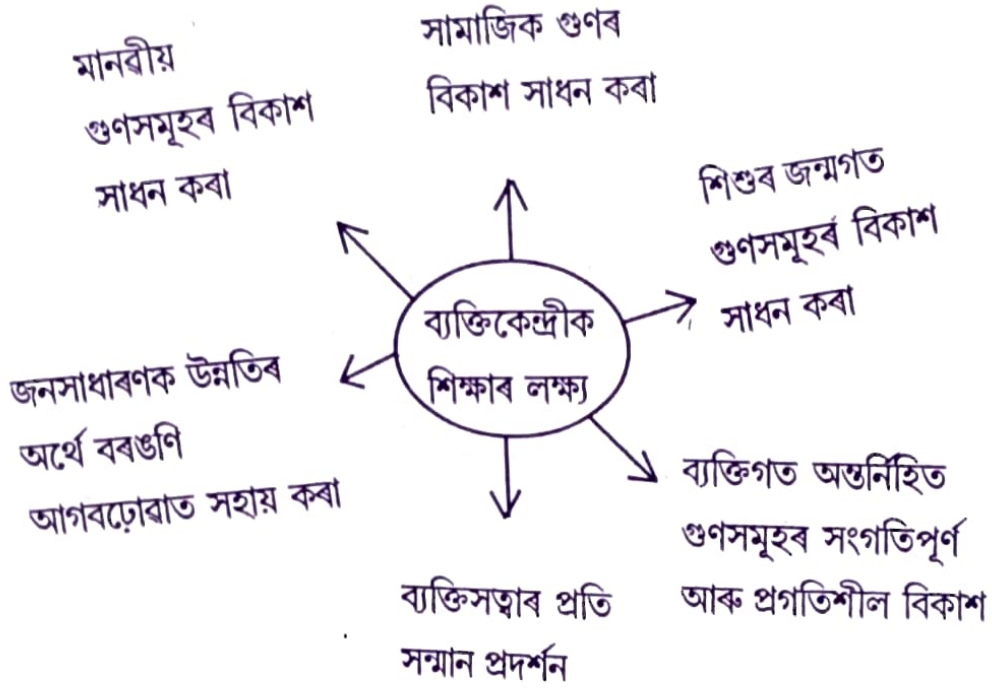 মানৱীয়
গুণসমূহৰ বিকাশ
সাধন কৰা
সামাজিক গুণৰ
বিকাশ সাধন কৰা
শিশুৰ জন্মগত
গুণসমূহৰ বিকাশ
সাধন কৰা
ব্যক্তিকেন্দ্ৰীক
শিক্ষাৰ লক্ষ্য
জনসাধাৰণক উন্নতিৰ
অৰ্থে বৰঙণি
আগবঢ়োৱাত সহায় কৰা
ব্যক্তিগত অন্তৰ্নিহিত
গুণসমূহৰ সংগতিপূৰ্ণ
আৰু প্ৰগতিশীল বিকাশ
ব্যক্তিসত্বাৰ প্ৰতি
সন্মান প্ৰদৰ্শন